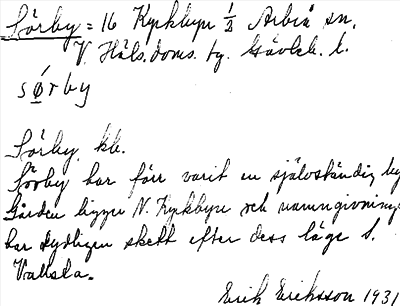 Sörby = 16 Kyrkbyn 1/2 Arbrå sn.
V. Häls. doms. tg. Gävleb. l.
sø̱rby
Sörby, kb.
Sörby har förr varit en självständig by
Gården ligger N. Kyrkbyn och namngivning
har tydligen skett efter dess läge t.
Vallsta.
Erik Eriksson 1931